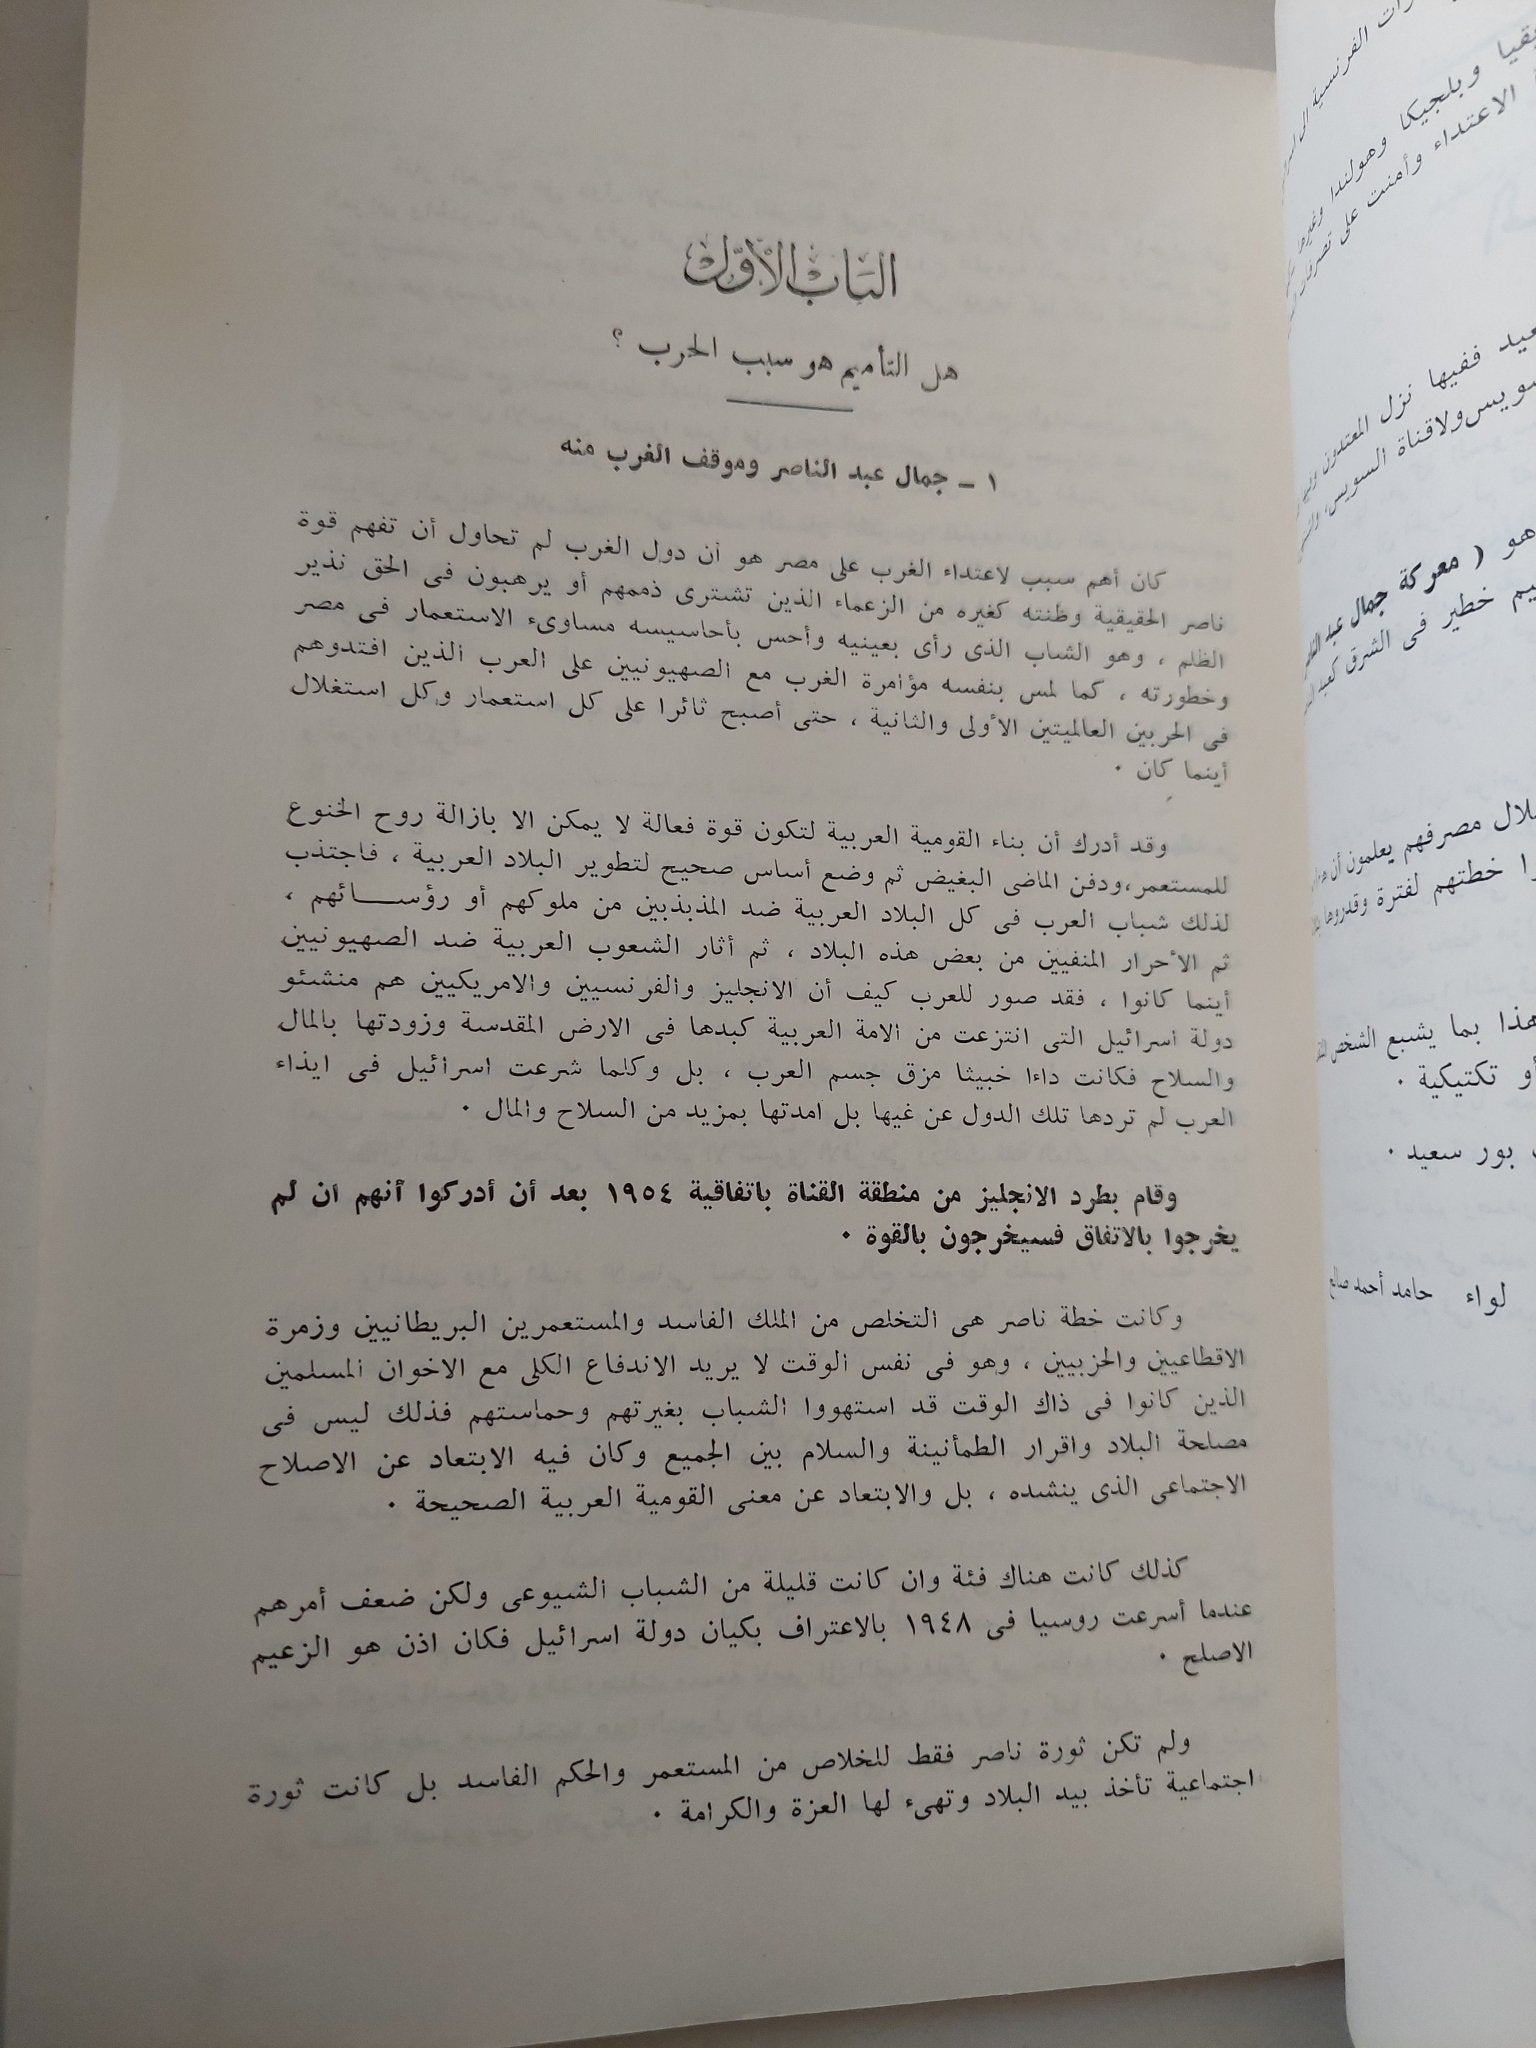 الباب الأول
هل التأميم هو سبب الحرب ؟
١ ـ جمال عبد الناصر وموقف الغرب منه
كان أهم سبب لاعتداء الغرب على مصر هو أن دول الغرب لم تحاول أن تفهم قوة
ناصر الحقيقية وظنته كغيره من الزعماء الذين تشترى ذممهم أو يرهبون فى الحق نذير
الظلم ، وهو الشاب الذى رأى بعينيه وأحس بأحاسيسه مساوىء الاستعمار فى مصر
وخطورته ، كما لمس بنفسه مؤامرة الغرب مع الصهيونيين على العرب الذين افتدوهم
فى الحربين العالميتين الأولى والثانية ، حتى أصبح ثائرا على كل استعمار وكل استغلال
أينما كان .
وقد أدرك أن بناء القومية العربية لتكون قوة فعالة لا يمكن الا بازالة روح الخنوع
للمستعمر،ودفن الماضى البغيض ثم وضع أساس صحيح لتطوير البلاد العربية ، فاجتذب
لذلك شباب العرب فى كل البلاد العربية ضد المذبذبين من ملوكهم أو رؤســـائهم ،
ثم الأحرار المنفيين من بعض هذه البلاد ، ثم أثار الشعوب العربية ضد الصهيونيين
أينما كانوا ، فقد صور للعرب كيف أن الانجليز والفرنسيين والامريكيين هم منشئو
دولة اسرائيل التى انتزعت من الامة العربية كبدها فى الارض المقدسة وزودتها بالمال
والسلاح فكانت داءا خبيثا مزق جسم العرب ، بل وكلما شرعت اسرائيل فى ايذاء
العرب لم تردها تلك الدول عن غيها بل امدتها بمزيد من السلاح والمال .
وقام بطرد الانجليز من منطقة القناة باتفاقية ١٩٥٤ بعد أن أدركوا أنهم ان لم
يخرجوا بالاتفاق فسيخرجون بالقوة .
وكانت خطة ناصر هى التخلص من الملك الفاسد والمستعمرين البريطانيين وزمرة
الاقطاعيين والحزبيين ، وهو فى نفس الوقت لا يريد الاندفاع الكلى مع الاخوان المسلمين
الذين كانوا فى ذاك الوقت قد استهووا الشباب بغيرتهم وحماستهم فذلك ليس فى
مصلحة البلاد واقرار الطمأنينة والسلام بين الجميع وكان فيه الابتعاد عن الاصلاح
الاجتماعى الذى ينشده ، بل والابتعاد عن معنى القومية العربية الصحيحة .
كذلك كانت هناك فئة وان كانت قليلة من الشباب الشيوعى ولكن ضعف أمرهم
عندما أسرعت روسيا فى ١٩٤٨ بالاعتراف بكيان دولة اسرائيل فكان اذن هو الزعيم
الاصلح .
ولم تكن ثورة ناصر فقط للخلاص من المستعمر والحكم الفاسد بل كانت ثورة
اجتماعية تأخذ بيد البلاد وتهىء لها العزة والكرامة .
الفرنسية
وبلجيكا وهولندا وغيرها
الاعتداء وأمنت على
ففيها نزل المعتدون
ولا قناة السويس،
هو ( معركة جمال عبد
خطير فى الشرق
مصرفهم يعلمون أن
خطتهم لفترة وقدروها
هذا بما يشبع الشخص
أو تكتيكية .
بور سعيد .
لواء حامد أحمد صالح